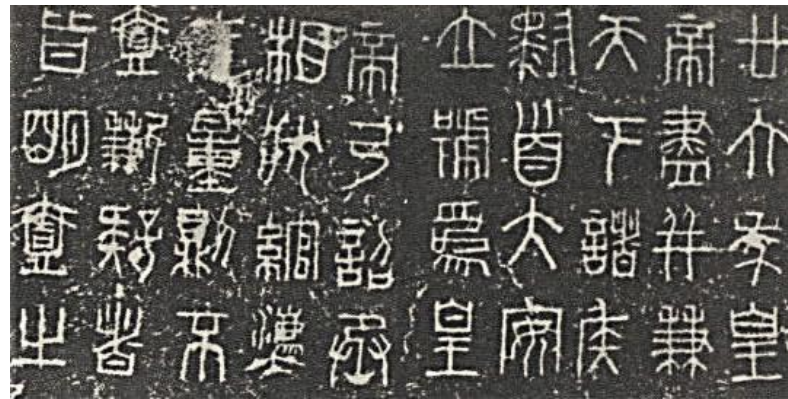 廿六年皇
帝盡并兼
天下諸侯
黔首大安
立號爲皇
帝乃詔丞
相狀綰灋
量則不
壹歉疑者
皆明壹之